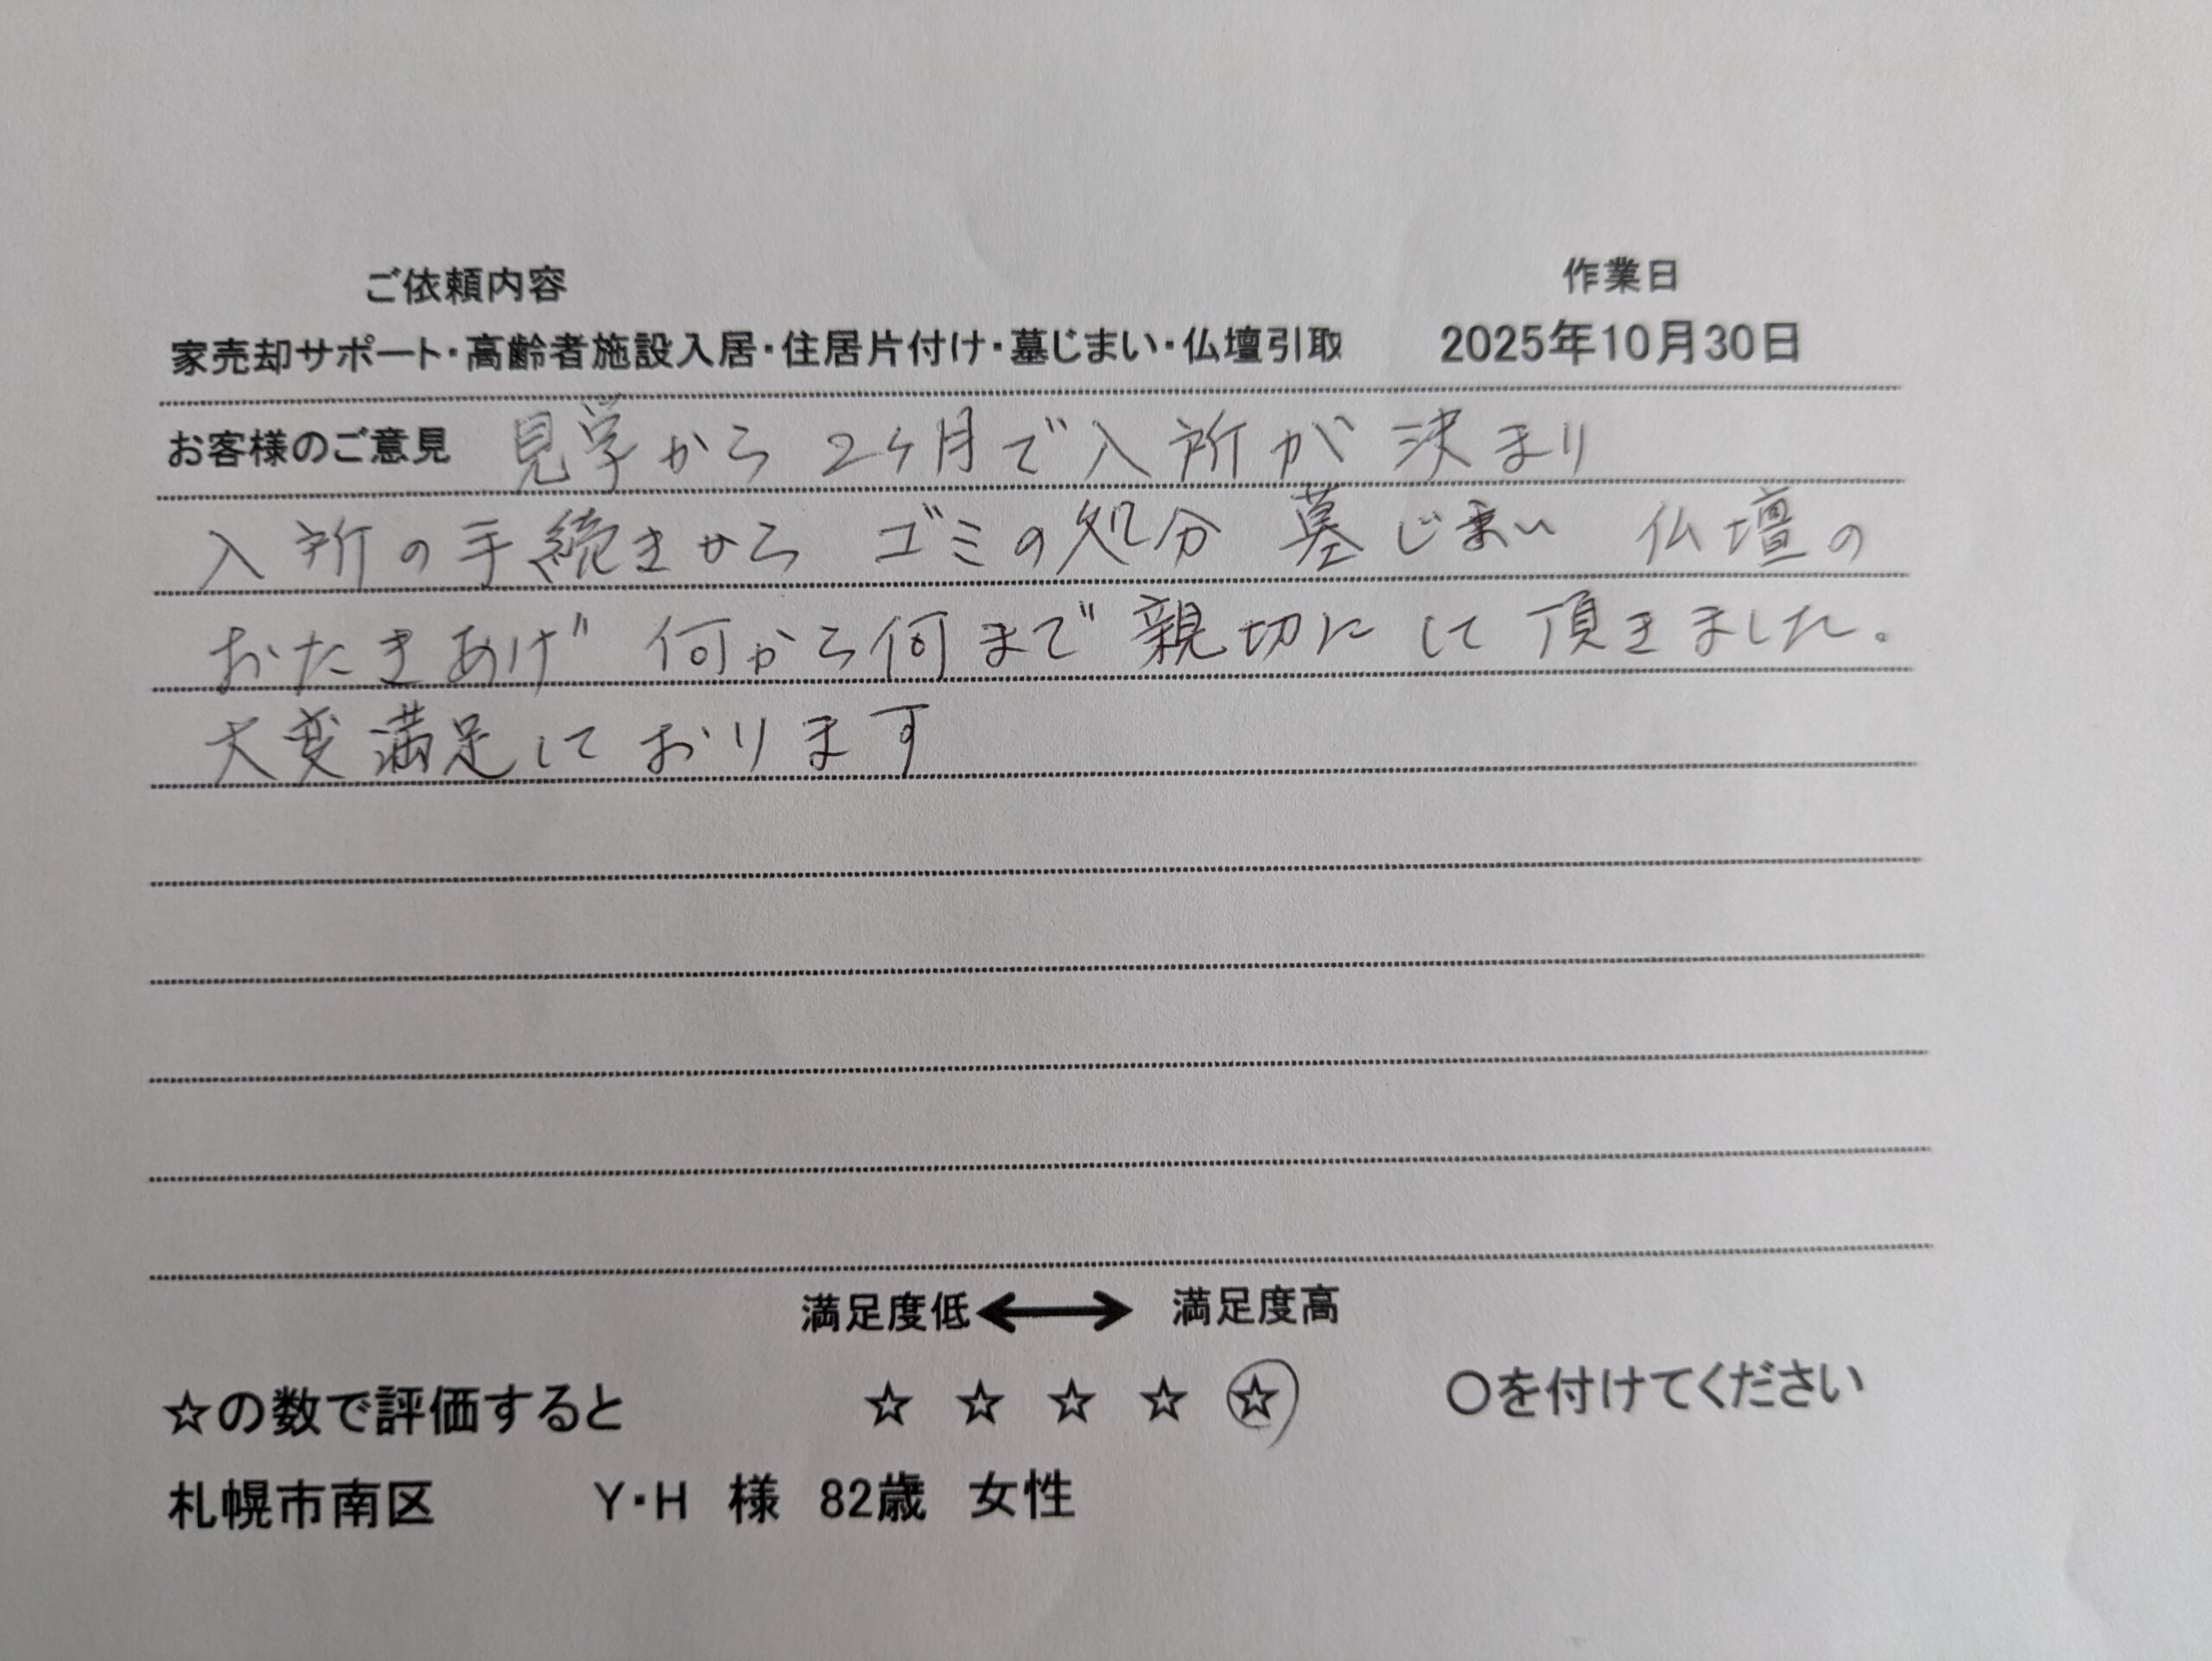 ご依頼内容 作業日
家売却サポート・高齢者施設入居・住居片付け・墓じまい・仏壇引取 2025年10月30日
お客様のご意見 見学から 2ケ月で入所が 決まり
入所の手続きから ゴミの処分 墓じまい 仏壇の
おたきあげ 何から何まで 親切に して 頂きました。
大変満足して おります
満足度低 ⟷ 満足度高
☆の数で評価すると ☆ ☆ ☆ ☆ ☆ 〇を付けてください
札幌市南区 Y・H 様 82歳 女性